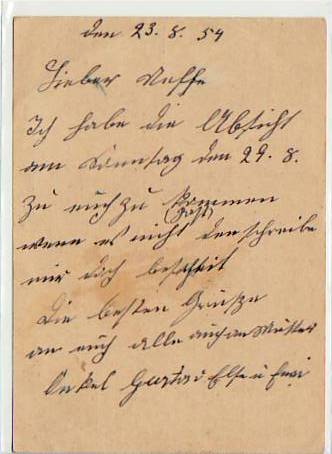 den 23. 8. 54
Lieber Neffe
Ich habe die Absicht
am Sonntag den 29. 8.
zu euch zu kommen
(paßt)
wenn es nicht den schreibe
mir doch bescheit
Die besten Grüsze
an euch alle auch an Mutter
Onkel Gustav Else u